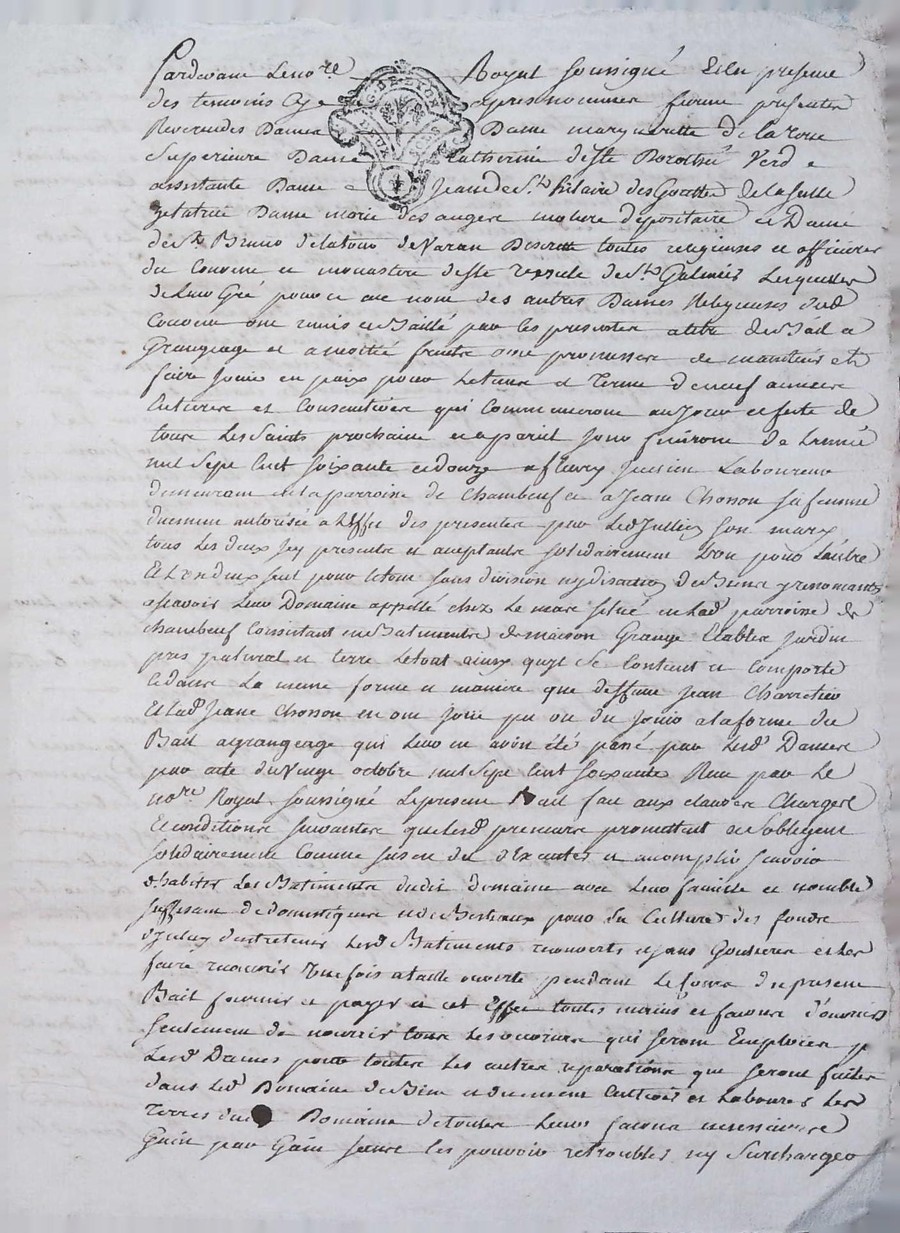 Pardevant Leno.re Royal soussigné Et en presence
G. DE LYON
des temoins Cy apres nommes furent presentes
Reverendes Dames Dame margueritte de la
Superieure Dame Catherine deste Dorothée Verd
assistante Dame Jeanne de St hilaire des Gouttes de la
Zelatrice Dame marie des anges mature depositaire et Dame
de St Bruno delatour de Varan Discrette toutes religieuses et officieres
du Couvent et monastere de Ste Vrsule de St Galmier Lesquelles
de Leur Gré pour ce au nom des autres Dames Religieuses dud
Couvent ont remis et Baillé par les presentes a titre de Bail a
Grangeage et a moitié fruits avec promesse de maintenir et
faire Jouir en paix pour Le tems et Terme de neuf années
Entieres et Consecutives qui Commenceront au Jour et feste de
tous Les Saints prochaine et a pareil Jour finiront de Lannée
mil Sept Cent soixante et douze a fleury Jullien Laboureur
demeurant en la parroisse de Chambeuf et a Jeane Chosson sa femme
duement autorisée a Leffet des presentes par Led Jullien Son mary
tous Les deux Icy presents et acceptants solidairement Lun pour Lautre
Et Lun deux seul pour le tout sans division ny discution de Biens y renoncants
ascavoir Leur Domaine appellé chez Le mare situé en Lad parroisse de
chambeuf Consistant en Batiments de maison Grange Etables Jardin
prés patural et terre Le tout ainsy quil Se Contient et Comporte
Et dans La meme forme et maniere que deffunt Jean Charretier
Et Lad Jeane Chosson en ont Joui pu ou du Jouir a la forme du
Bail a grangeage qui Leur en avoit été passé par Lesd Dames
par acte du Vingt octobre mil Sept Cent Soixante Recu par Le
no.re Royal Soussigné Le present Bail fait aux clauses Charges
Et conditions suivantes que Lesd preneurs promettent et Sobligent
solidairement Comme Susen de dExecuter et accomplir Scavoir
dhabiter Les Batiments dudit domaine avec Leur famille et nombre
suffisant de domestiques et de Bestiaux pour La Culture des fonds
dIceluy dentretenir Lesd Batiments recouverts et sans Goutieres et Les
faire recouvrir Une fois a taille ouverte pendant Le Cours du present
Bail fournir et payer a cet Effet toutes mains et facons d'ouvriers
seulement de nourrir tous Les ouvriers qui seront Employés p
Lesd Dames pour toutes Les autres reparations qui seront faites
dans Led Domaine de Bien et duement Cultiver et Labourer Les
Terres dud Domaine de toutes Leurs facons necessaires
Guin par Guin sans les pouvoir retroubler ny Surcharger